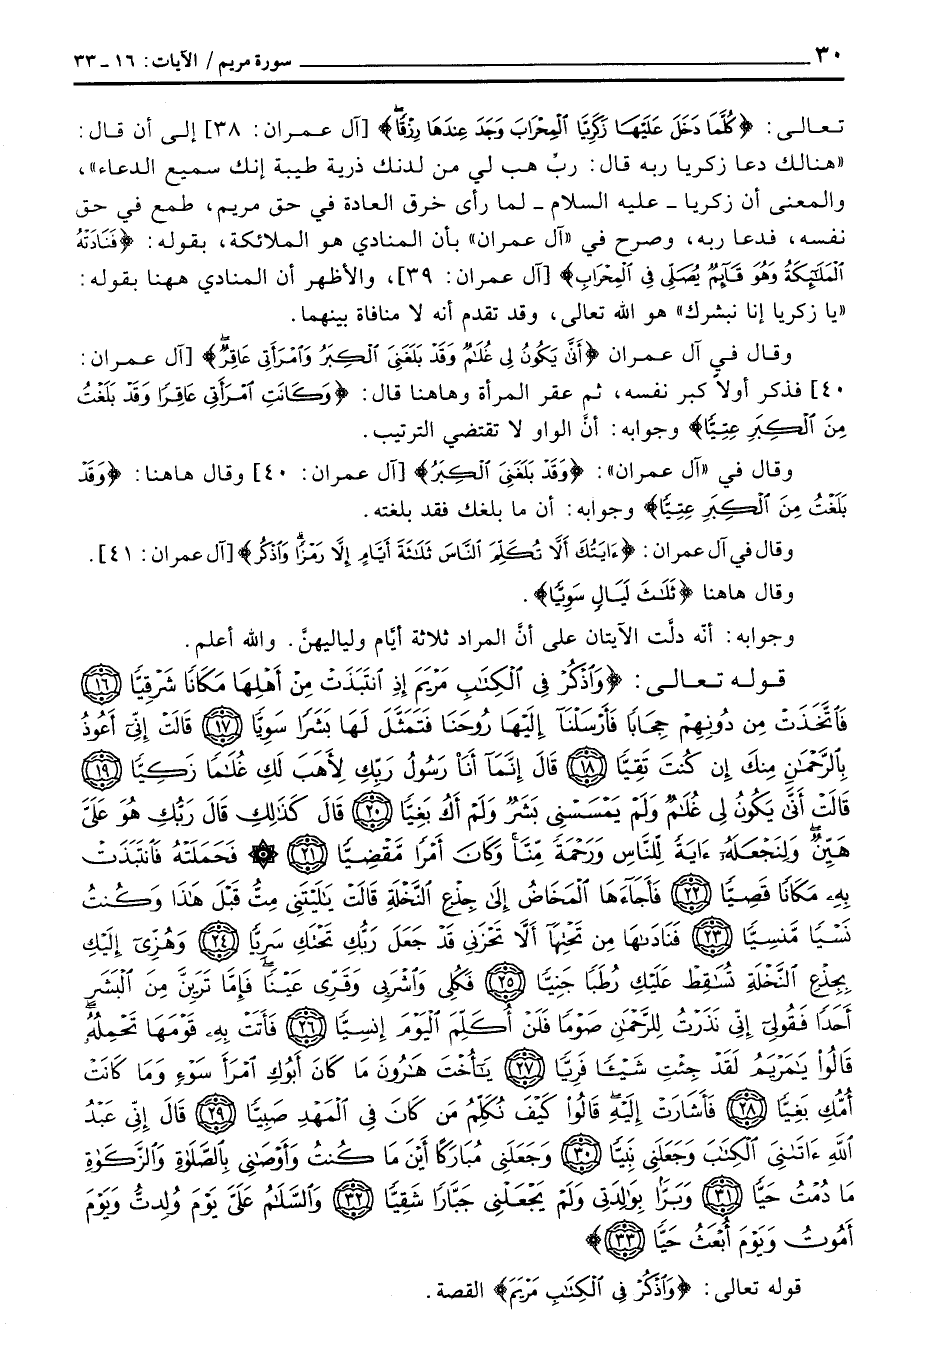 ٣٠ سورة مريم / الآيات: ١٦ ـ ٣٣
تعالى: ﴿كُلَّمَا دَخَلَ عَلَيْهَا زَكَرِيَّا الْمِحْرَابَ وَجَدَ عِندَهَا رِزْقًا﴾ [آل عمران: ٣٨] إلى أن قال:
«هنالك دعا زكريا ربه قال: ربِّ هب لي من لدنك ذرية طيبة إنك سميع الدعاء»،
والمعنى أن زكريا ـ عليه السلام ـ لما رأى خرق العادة في حق مريم، طمع في حق
نفسه، فدعا ربه، وصرح في «آل عمران» بأن المنادي هو الملائكة، بقوله: ﴿فَنَادَتْهُ
الْمَلَٰٓئِكَةُ وَهُوَ قَآئِمٌ يُصَلِّي فِي الْمِحْرَابِ﴾ [آل عمران: ٣٩]، والأظهر أن المنادي ههنا بقوله:
«يا زكريا إنا نبشرك» هو الله تعالى، وقد تقدم أنه لا منافاة بينهما.
وقال في آل عمران ﴿أَنَّىٰ يَكُونُ لِي غُلَٰمٌ وَقَدْ بَلَغَنِيَ الْكِبَرُ وَامْرَأَتِي عَاقِرٌ﴾ [آل عمران:
٤٠] فذكر أولاً كبر نفسه، ثم عقر المرأة وهاهنا قال: ﴿وَكَانَتِ امْرَأَتِي عَاقِرًا وَقَدْ بَلَغْتُ
مِنَ الْكِبَرِ عِتِيًّا﴾ وجوابه: أنَّ الواو لا تقتضي الترتيب.
وقال في «آل عمران»: ﴿وَقَدْ بَلَغَنِيَ الْكِبَرُ﴾ [آل عمران: ٤٠] وقال هاهنا: ﴿وَقَدْ
بَلَغْتُ مِنَ الْكِبَرِ عِتِيًّا﴾ وجوابه: أن ما بلغك فقد بلغته.
وقال في آل عمران: ﴿ءَايَتُكَ أَلَّا تُكَلِّمَ النَّاسَ ثَلَٰثَةَ أَيَّامٍ إِلَّا رَمْزًا وَاذْكُر﴾ [آل عمران: ٤١].
وقال هاهنا ﴿ثَلَٰثَ لَيَالٍ سَوِيًّا﴾.
وجوابه: أنّه دلَّت الآيتان على أنَّ المراد ثلاثة أيَّام ولياليهنَّ. والله أعلم.
قوله تعالى: ﴿وَاذْكُرْ فِي الْكِتَٰبِ مَرْيَمَ إِذِ انتَبَذَتْ مِنْ أَهْلِهَا مَكَانًا شَرْقِيًّا ١٦
فَاتَّخَذَتْ مِن دُونِهِمْ حِجَابًا فَأَرْسَلْنَآ إِلَيْهَا رُوحَنَا فَتَمَثَّلَ لَهَا بَشَرًا سَوِيًّا ١٧ قَالَتْ إِنِّي أَعُوذُ
بِالرَّحْمَٰنِ مِنكَ إِن كُنتَ تَقِيًّا ١٨ قَالَ إِنَّمَآ أَنَا۠ رَسُولُ رَبِّكِ لِأَهَبَ لَكِ غُلَٰمًا زَكِيًّا ١٩
قَالَتْ أَنَّىٰ يَكُونُ لِي غُلَٰمٌ وَلَمْ يَمْسَسْنِي بَشَرٌ وَلَمْ أَكُ بَغِيًّا ٢٠ قَالَ كَذَٰلِكِ قَالَ رَبُّكِ هُوَ عَلَيَّ
هَيِّنٌ وَلِنَجْعَلَهُۥٓ ءَايَةً لِّلنَّاسِ وَرَحْمَةً مِّنَّا وَكَانَ أَمْرًا مَّقْضِيًّا ٢١ ۞ فَحَمَلَتْهُ فَانتَبَذَتْ
بِهِۦ مَكَانًا قَصِيًّا ٢٢ فَأَجَآءَهَا الْمَخَاضُ إِلَىٰ جِذْعِ النَّخْلَةِ قَالَتْ يَٰلَيْتَنِي مِتُّ قَبْلَ هَٰذَا وَكُنتُ
نَسْيًا مَّنسِيًّا ٢٣ فَنَادَىٰهَا مِن تَحْتِهَآ أَلَّا تَحْزَنِي قَدْ جَعَلَ رَبُّكِ تَحْتَكِ سَرِيًّا ٢٤ وَهُزِّيٓ إِلَيْكِ
بِجِذْعِ النَّخْلَةِ تُسَٰقِطْ عَلَيْكِ رُطَبًا جَنِيًّا ٢٥ فَكُلِي وَاشْرَبِي وَقَرِّي عَيْنًا فَإِمَّا تَرَيِنَّ مِنَ الْبَشَرِ
أَحَدًا فَقُولِيٓ إِنِّي نَذَرْتُ لِلرَّحْمَٰنِ صَوْمًا فَلَنْ أُكَلِّمَ الْيَوْمَ إِنسِيًّا ٢٦ فَأَتَتْ بِهِۦ قَوْمَهَا تَحْمِلُهُۥ
قَالُوا يَٰمَرْيَمُ لَقَدْ جِئْتِ شَيْـًٔا فَرِيًّا ٢٧ يَٰٓأُخْتَ هَٰرُونَ مَا كَانَ أَبُوكِ امْرَأَ سَوْءٍ وَمَا كَانَتْ
أُمُّكِ بَغِيًّا ٢٨ فَأَشَارَتْ إِلَيْهِ قَالُوا كَيْفَ نُكَلِّمُ مَن كَانَ فِي الْمَهْدِ صَبِيًّا ٢٩ قَالَ إِنِّي عَبْدُ
اللَّهِ ءَاتَىٰنِيَ الْكِتَٰبَ وَجَعَلَنِي نَبِيًّا ٣٠ وَجَعَلَنِي مُبَارَكًا أَيْنَ مَا كُنتُ وَأَوْصَٰنِي بِالصَّلَوٰةِ وَالزَّكَوٰةِ
مَا دُمْتُ حَيًّا ٣١ وَبَرًّا بِوَٰلِدَتِي وَلَمْ يَجْعَلْنِي جَبَّارًا شَقِيًّا ٣٢ وَالسَّلَٰمُ عَلَيَّ يَوْمَ وُلِدتُّ وَيَوْمَ
أَمُوتُ وَيَوْمَ أُبْعَثُ حَيًّا ٣٣﴾
قوله تعالى: ﴿وَاذْكُرْ فِي الْكِتَٰبِ مَرْيَمَ﴾ القصة.